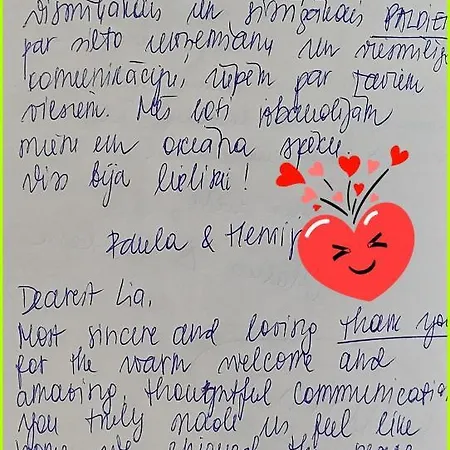 vismīļākais un sirsnīgākais PALDIES
par silto uzņemšanu un viesmīlīgo
komunikāciju, rūpēm par saviem
viesiem. Mēs ļoti izbaudījām
mieru un okeāna spēku.
Viss bija lieliski!
Paula &
Dearest Lia,
Most sincere and loving thank you
for the warm welcome and
amazing, thoughtful communication,
you truly made us feel like